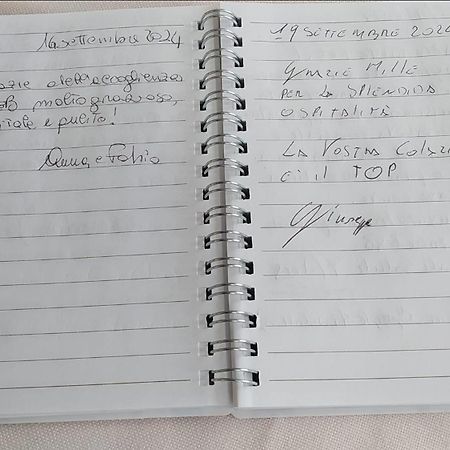 16 settembre 2024
azie dell'accoglienza
B&B molto grazioso,
itale e pulito!
Anna e Fabio
19 SETTEMBRE 202
GRAZIE MILLE
PER LA SPLENDIDA
OSPITALITÀ
LA VOSTRA COLAZ
È IL TOP
Giusep